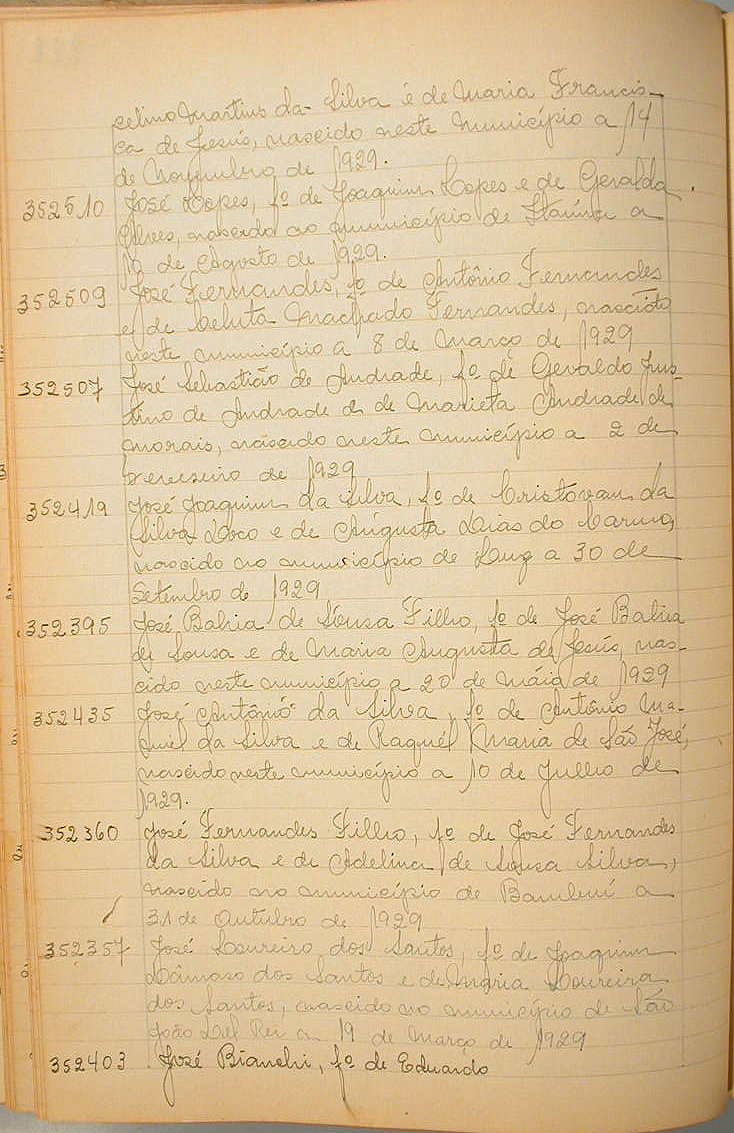 celino Martins da Silva e de Maria Francis-
ca de Jesús, nascido neste município a 14
de Novembro de 1929.
352510 José Lopes, fº de Joaquim Lopes e de Geralda
Alves, nascido no município de Itaúna a
12 de Agosto de 1929.
352509 José Fernandes, fº de Antônio Fernandes
e de Celuta Machado Fernandes, nascido
neste município a 8 de Março de 1929
352507 José Sebastião de Andrade, fº de Geraldo Jus-
tino de Andrade e de Marieta Andrade de
Morais, nascido neste município a 2 de
Fevereiro de 1929
352419 José Joaquim da Silva, fº de Cristóvam da
Silva Loco e de Augusta Dias do Carmo,
nascido no município de Luz a 30 de
Setembro de 1929
352395 José Bahia de Sousa Filho, fº de José Bahia
de Sousa e de Maria Augusta de Jesús, nas-
cido neste município a 20 de Máio de 1929
352435 José Antônio da Silva, fº de Antônio Ma-
nuel da Silva e de Raquél Maria de São José,
nascido neste município a 10 de Julho de
1929.
352360 José Fernandes Filho, fº de José Fernandes
da Silva e de Adelina de Sousa Silva,
nascido no município de Bambuí a
31 de Outubro de 1929
352357 José Loureiro dos Santos, fº de Joaquim
Dâmaso dos Santos e de Maria Loureira
dos Santos, nascido no município de São
João Del Rei a 19 de Março de 1929
352403 José Bianchi, fº de Eduardo